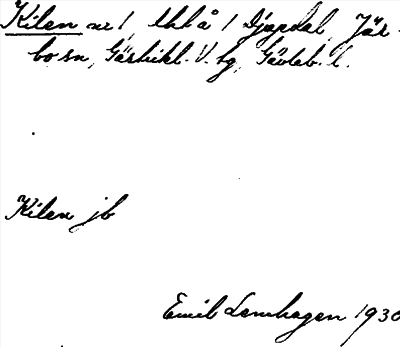 Kilen av 1, Ekl å 1 Djupdal, Jär-
bo sn, Gästrikl. V. tg, Gävleb. l.
Kilen jb
Emil Lenhagen 1930